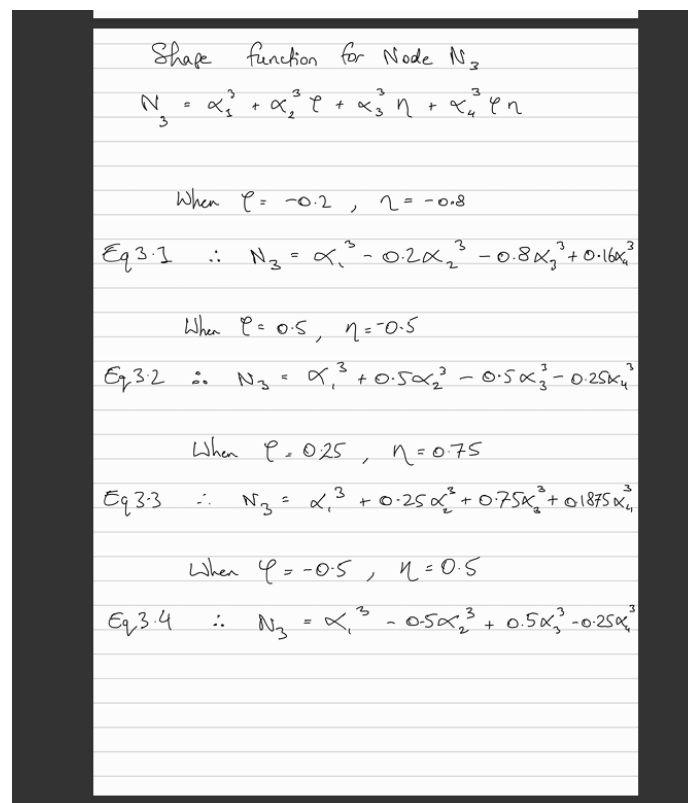 Shape function for Node N₃
N₃ = α₁³ + α₂³ φ + α₃³ η + α₄³ φη
When φ = -0.2 , η = -0.8
Eq 3.1 ∴ N₃ = α₁³ - 0.2α₂³ - 0.8α₃³ + 0.16α₄³
When φ = 0.5 , η = -0.5
Eq 3.2 ∴ N₃ = α₁³ + 0.5α₂³ - 0.5α₃³ - 0.25α₄³
When φ = 0.25 , η = 0.75
Eq 3.3 ∴ N₃ = α₁³ + 0.25α₂³ + 0.75α₃³ + 0.1875α₄³
When φ = -0.5 , η = 0.5
Eq 3.4 ∴ N₃ = α₁³ - 0.5α₂³ + 0.5α₃³ - 0.25α₄³